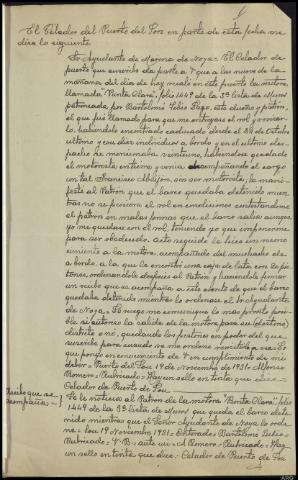 El Celador del Puerto del Son en parte de esta fecha me
dice lo siguiente
Sr Ayudante de Marina de Noya= El Celador de
puerto que suscribe da parte a V que a las nueve de la
mañana del dia de hoy recaló en este puerto la motora
llamada "Punta Clara", folio 1449 de la 3ª lista de Muros
patroneada por Bartolomé dueño y patron,
el que fué llamado para que me entregase el rol y
lo, habiendole encontrado caducado desde el 24 de Octubre
ultimo y con diez individuos a bordo y en el ultimo des-
pacho se mencionaba veintiuno, habiendose quedado
el motorista enfermo y venia desempeñando el cargo
un tal Francisco sin ser motorista, le mani-
festé al Patron que el barco quedaba detenido mien-
tras no se pusiera el rol en condiciones contestandome
el patron en malas formas que el barco salia aunque
yo me quedase con el rol, teniendo yo que imponerme
para ser obedecido. Acto seguido le hice un reco-
nocimiento a la motora, acompañado del muchacho de
a bordo, a la que le encontré una caja de lata con
tones, ordenandole despues al Patron y haciendole firmar
un recibo que se acompaña a este oficio de que el barco
quedaba detenido mientras lo ordenase el Sr Ayudante
de Noya. Lo ruego me comunique lo mas pronto posi-
ble si autorizo la salida de la motora para su (destino)
distrito o no, quedando los pistones en poder del que
suscribe para cuando V me ordene remitirlos a esa. Lo
que pongo en conocimiento de V en cumplimiento de mi
deber= Puerto del Son 19 de Noviembre de 1931= Alfonso
Romero= Rubricado= Hay un sello en tinta que dice=
Celador de Puerto de Son
Recibo que se
acompaña=
Se le notició al Patron de la motora "Punta Clara", folio
1449 de la 3ª Lista de Muros que queda el barco dete-
nido mientras que el Señor Ayudante de Noya, lo orde-
ne= Son 19 Noviembre 1931= Enterado= Bartolomé
Rubricado= V. B.= A Romero= Rubricado= Hay
un sello en tinta que dice: Celador de Puerto de Son